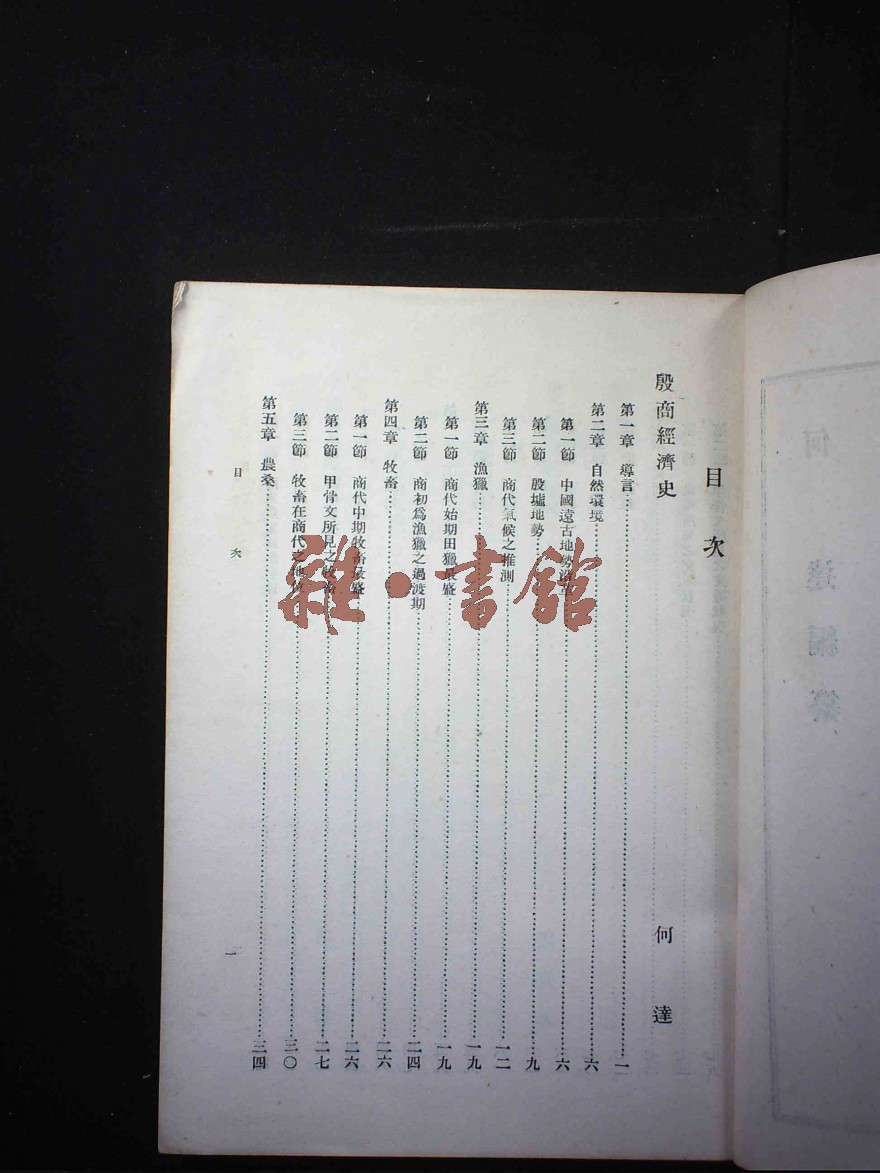 目次
殷商經濟史 何達
第一章 導言 一
第二章 自然環境 六
第一節 中國遠古地勢沿革 六
第二節 殷墟地勢 九
第三節 商代氣候之推測 一二
第三章 漁獵 一九
第一節 商代始期田獵最盛 一九
第二節 商初爲漁獵之過渡期 二四
第四章 牧畜 二六
第一節 商代中期牧畜最盛 二六
第二節 甲骨文所見之牧畜 二七
第三節 牧畜在商代之地位 三〇
第五章 農桑 三四
目次 一
雜·書館
何達編纂